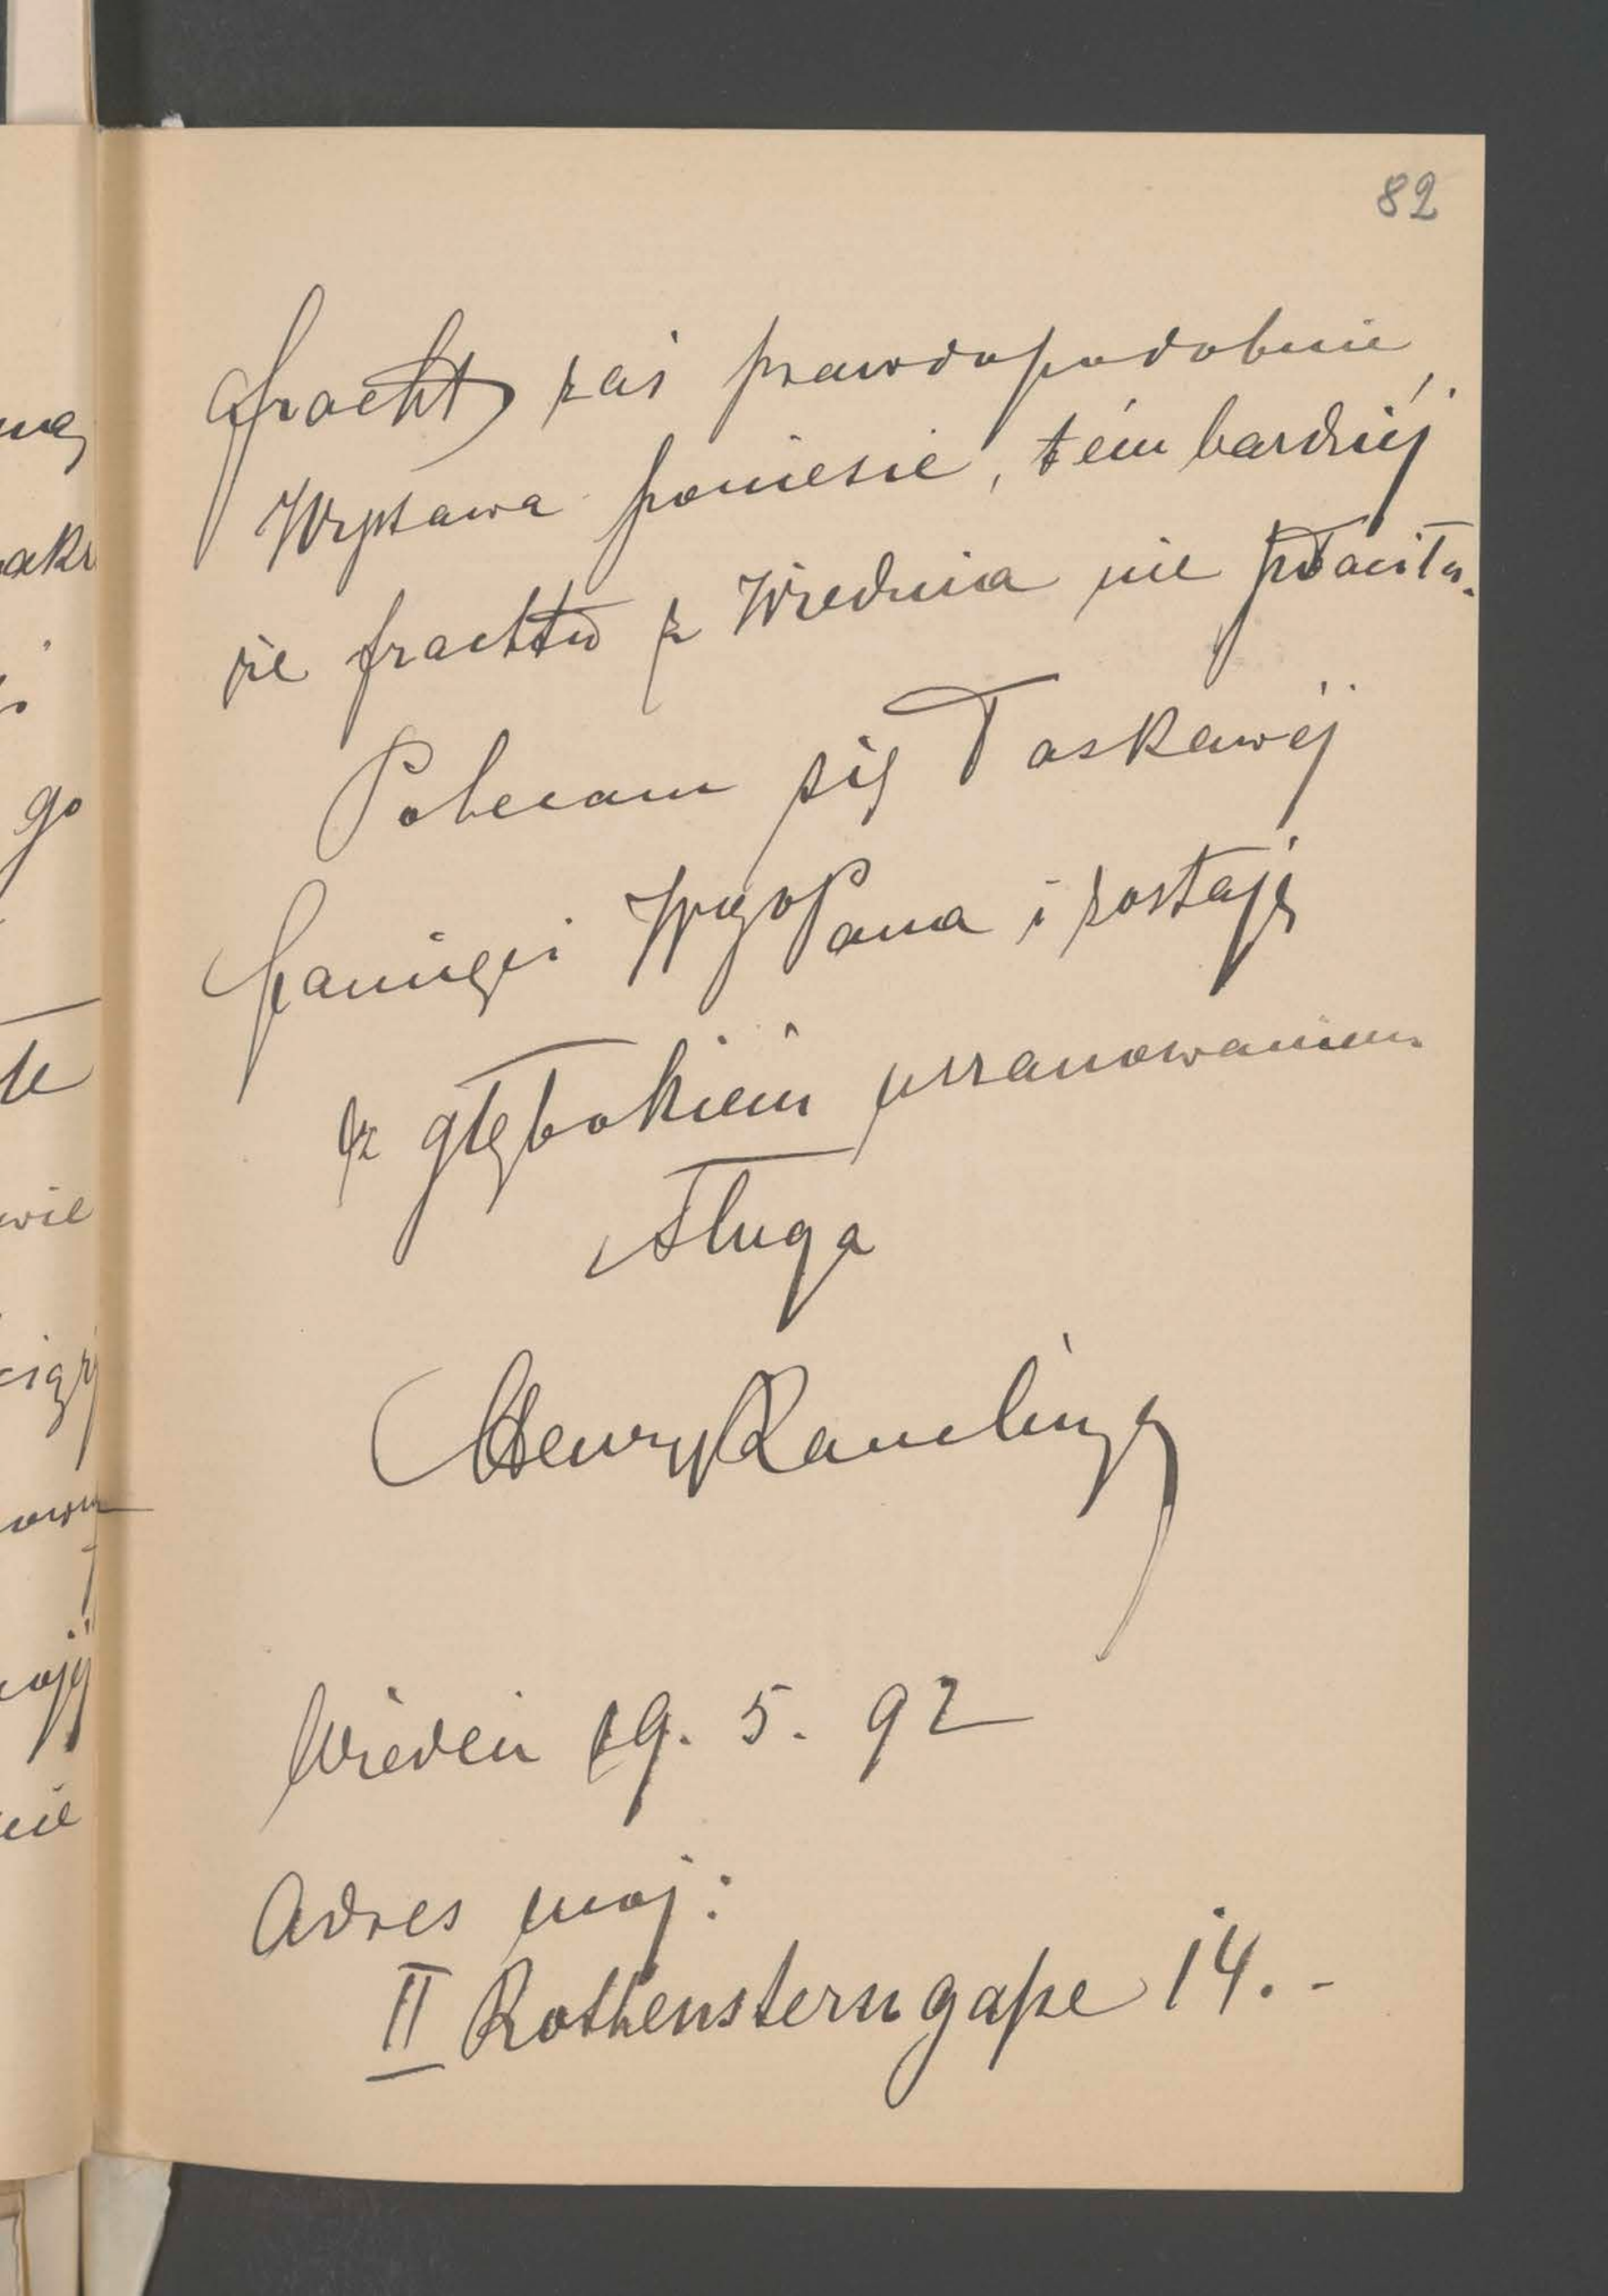 82
fracht zaś prawdopodobnie
Wystawa poniesie, tém bardziéj
że frachtu z Wiednia nie płaciła.
Polecam się Łaskawéj
pamięci WgoPana i zostaję
z głębokiém uszanowaniem
sługa
Henryk
Wiedeń 19. 5. 92
Adres mój:
II Rothensterngaße 14. -